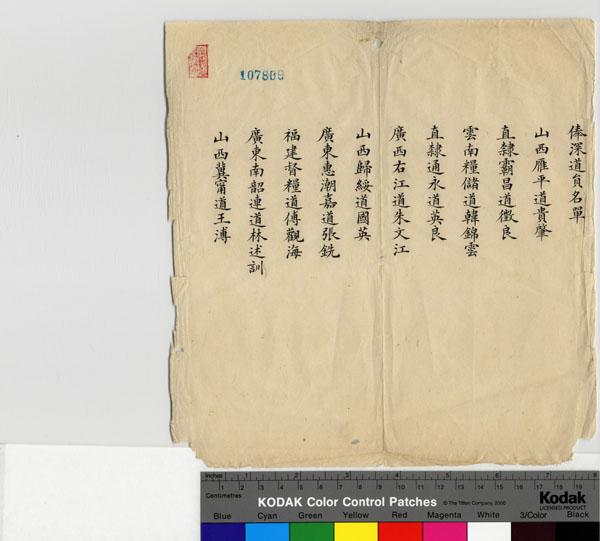 俸深道員名單
山西雁平道貴肇
直隸霸昌道徵良
雲南糧儲道韓錦雲
直隸通永道英良
廣西右江道朱文江
山西歸綏道國英
廣東惠潮嘉道張銑
福建督糧道傅觀海
廣東南韶連道林述訓
山西冀甯道王溥
107809
Inches
Centimetres
1 2 3 4 5 6 7 8
1 2 3 4 5 6 7 8 9 10 11 12 13 14 15 16 17 18 19
KODAK Color Control Patches
© The Tiffen Company, 2000
Kodak
LICENSED PRODUCT
Blue Cyan Green Yellow Red Magenta White 3/Color Black